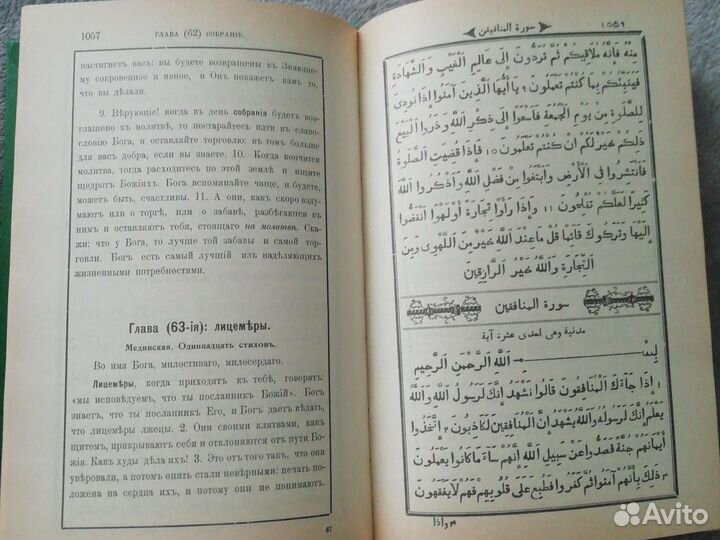 1057
ГЛАВА (62) СОБРАНІЕ.
настигнетъ васъ: вы будете возвращены къ Знающе-
му сокровенное и явное, и Онъ покажетъ вамъ то,
что вы дѣлали.
9. Вѣрующіе! когда въ день собранія будетъ
возглашено къ молитвѣ, то постарайтесь идти къ славо-
словію Бога, и оставляйте торговлю: въ томъ больше
для васъ добра, если вы знаете. 10. Когда кончится
молитва, тогда расходитесь по этой землѣ и ищите
щедротъ Божіихъ. Бога вспоминайте чаще, и будете,
можетъ быть, счастливы. 11. А они, какъ скоро взду-
маютъ или о торгѣ, или о забавѣ, разбѣгаются къ
нимъ и оставляютъ тебя, стоящаго на молитвѣ. Ска-
жи: что у Бога, то лучше той забавы и самой тор-
говли. Богъ есть самый лучшій изъ надѣляющихъ
жизненными потребностями.
Глава (63-ія): лицемѣры.
Мединская. Одиннадцать стиховъ.
Во имя Бога, милостиваго, милосердаго.
Лицемѣры, когда приходятъ къ тебѣ, говорятъ:
«мы исповѣдуемъ, что ты посланникъ Божій». Богъ
знаетъ, что ты посланникъ Его, и Богъ даетъ вѣдать,
что лицемѣры лжецы. 2. Они своими клятвами, какъ
щитомъ, прикрываютъ себя и отклоняются отъ пути Бо-
жія. Какъ худы дѣла ихъ! 3. Это отъ того такъ, что они
увѣровали, а потомъ опять стали невѣрными: печать по-
ложена на сердца ихъ, и потому они не понимаютъ.
67
سورة المنافقين
منْهُ فَإِنَّهُ مُلَاقِيكُمْ ثُمَّ تُرَدُّونَ إِلَى عَالِمِ الْغَيْبِ وَالشَّهَادَةِ
فَيُنَبِّئُكُمْ بِمَا كُنْتُمْ تَعْمَلُونَ ٩ يَا أَيُّهَا الَّذِينَ آمَنُوا إِذَا نُودِيَ
لِلصَّلٰوةِ مِنْ يَوْمِ الْجُمُعَةِ فَاسْعَوْا إِلَى ذِكْرِ اللَّهِ وَذَرُوا الْبَيْعَ
ذَلِكُمْ خَيْرٌ لَكُمْ إِنْ كُنْتُمْ تَعْلَمُونَ ١٠ فَإِذَا قُضِيَتِ الصَّلٰوةُ
فَانْتَشِرُوا فِي الْأَرْضِ وَابْتَغُوا مِنْ فَضْلِ اللَّهِ وَاذْكُرُوا اللَّهَ
كَثِيرًا لَعَلَّكُمْ تُفْلِحُونَ ١١ وَإِذَا رَأَوْا تِجَارَةً أَوْ لَهْوًا انْفَضُّوا
إِلَيْهَا وَتَرَكُوكَ قَائِمًا قُلْ مَا عِنْدَ اللَّهِ خَيْرٌ مِنَ اللَّهْوِ وَمِنَ
التِّجَارَةِ وَاللَّهُ خَيْرُ الرَّازِقِينَ
سورة المنافقين
مدنية وهى احدى عشرة آية
بِسْمِ اللَّهِ الرَّحْمَنِ الرَّحِيمِ
١ إِذَا جَاءَكَ الْمُنَافِقُونَ قَالُوا نَشْهَدُ إِنَّكَ لَرَسُولُ اللَّهِ وَاللَّهُ
يَعْلَمُ إِنَّكَ لَرَسُولُهُ وَاللَّهُ يَشْهَدُ إِنَّ الْمُنَافِقِينَ لَكَاذِبُونَ ٢ إِتَّخَذُوا
أَيْمَانَهُمْ جُنَّةً فَصَدُّوا عَنْ سَبِيلِ اللَّهِ إِنَّهُمْ سَاءَ مَا كَانُوا يَعْمَلُونَ
٣ ذَلِكَ بِأَنَّهُمْ آمَنُوا ثُمَّ كَفَرُوا فَطُبِعَ عَلَى قُلُوبِهِمْ فَهُمْ لَا يَفْقَهُونَ
٤ واذا
Avito